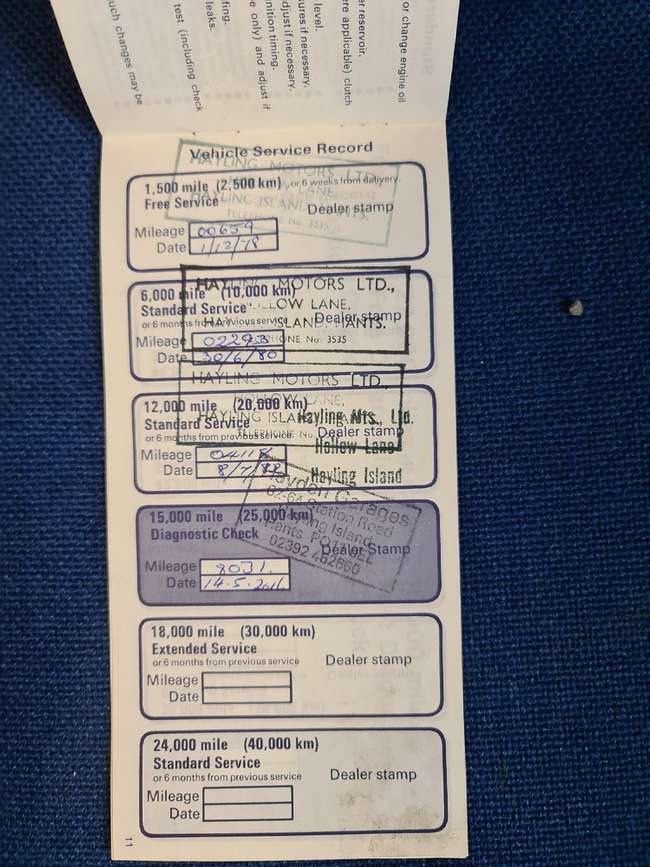 or change engine oil
er reservoir.
ere applicable) clutch
level.
ures if necessary.
djust if necessary.
nition timing.
e only) and adjust if
fing.
leaks.
test (including check
uch changes may be
Vehicle Service Record
HAYLING MOTORS LTD.,
LANE,
HAYLING ISLAND, HANTS.
TELEPHONE No. 3535
1,500 mile (2,500 km) or 6 weeks from delivery.
Free Service
Dealer stamp
Mileage 00659
Date 1/12/78
HAYLING MOTORS LTD.,
HOLLOW LANE,
HAYLING ISLAND, HANTS.
TELEPHONE No. 3535
6,000 mile (10,000 km)
Standard Service
Dealer stamp
or 6 months from previous service
Mileage 02293
Date 30/6/80
HAYLING MOTORS LTD.,
HOLLOW LANE,
HAYLING ISLAND, HANTS.
TELEPHONE No.
12,000 mile (20,000 km)
Standard Service
Dealer stamp
or 6 months from previous service
Mileage
Date 8/7/82
Hayling Mts., Ltd.
Hollow Lane
Hayling Island
Hayden Garages
62-64 Station Road
Hayling Island
Hants
02392 462660
15,000 mile (25,000 km)
Diagnostic Check
Dealer Stamp
Mileage 8031.
Date 14.5.2011
18,000 mile (30,000 km)
Extended Service
or 6 months from previous service
Dealer stamp
Mileage
Date
24,000 mile (40,000 km)
Standard Service
or 6 months from previous service
Dealer stamp
Mileage
Date
11